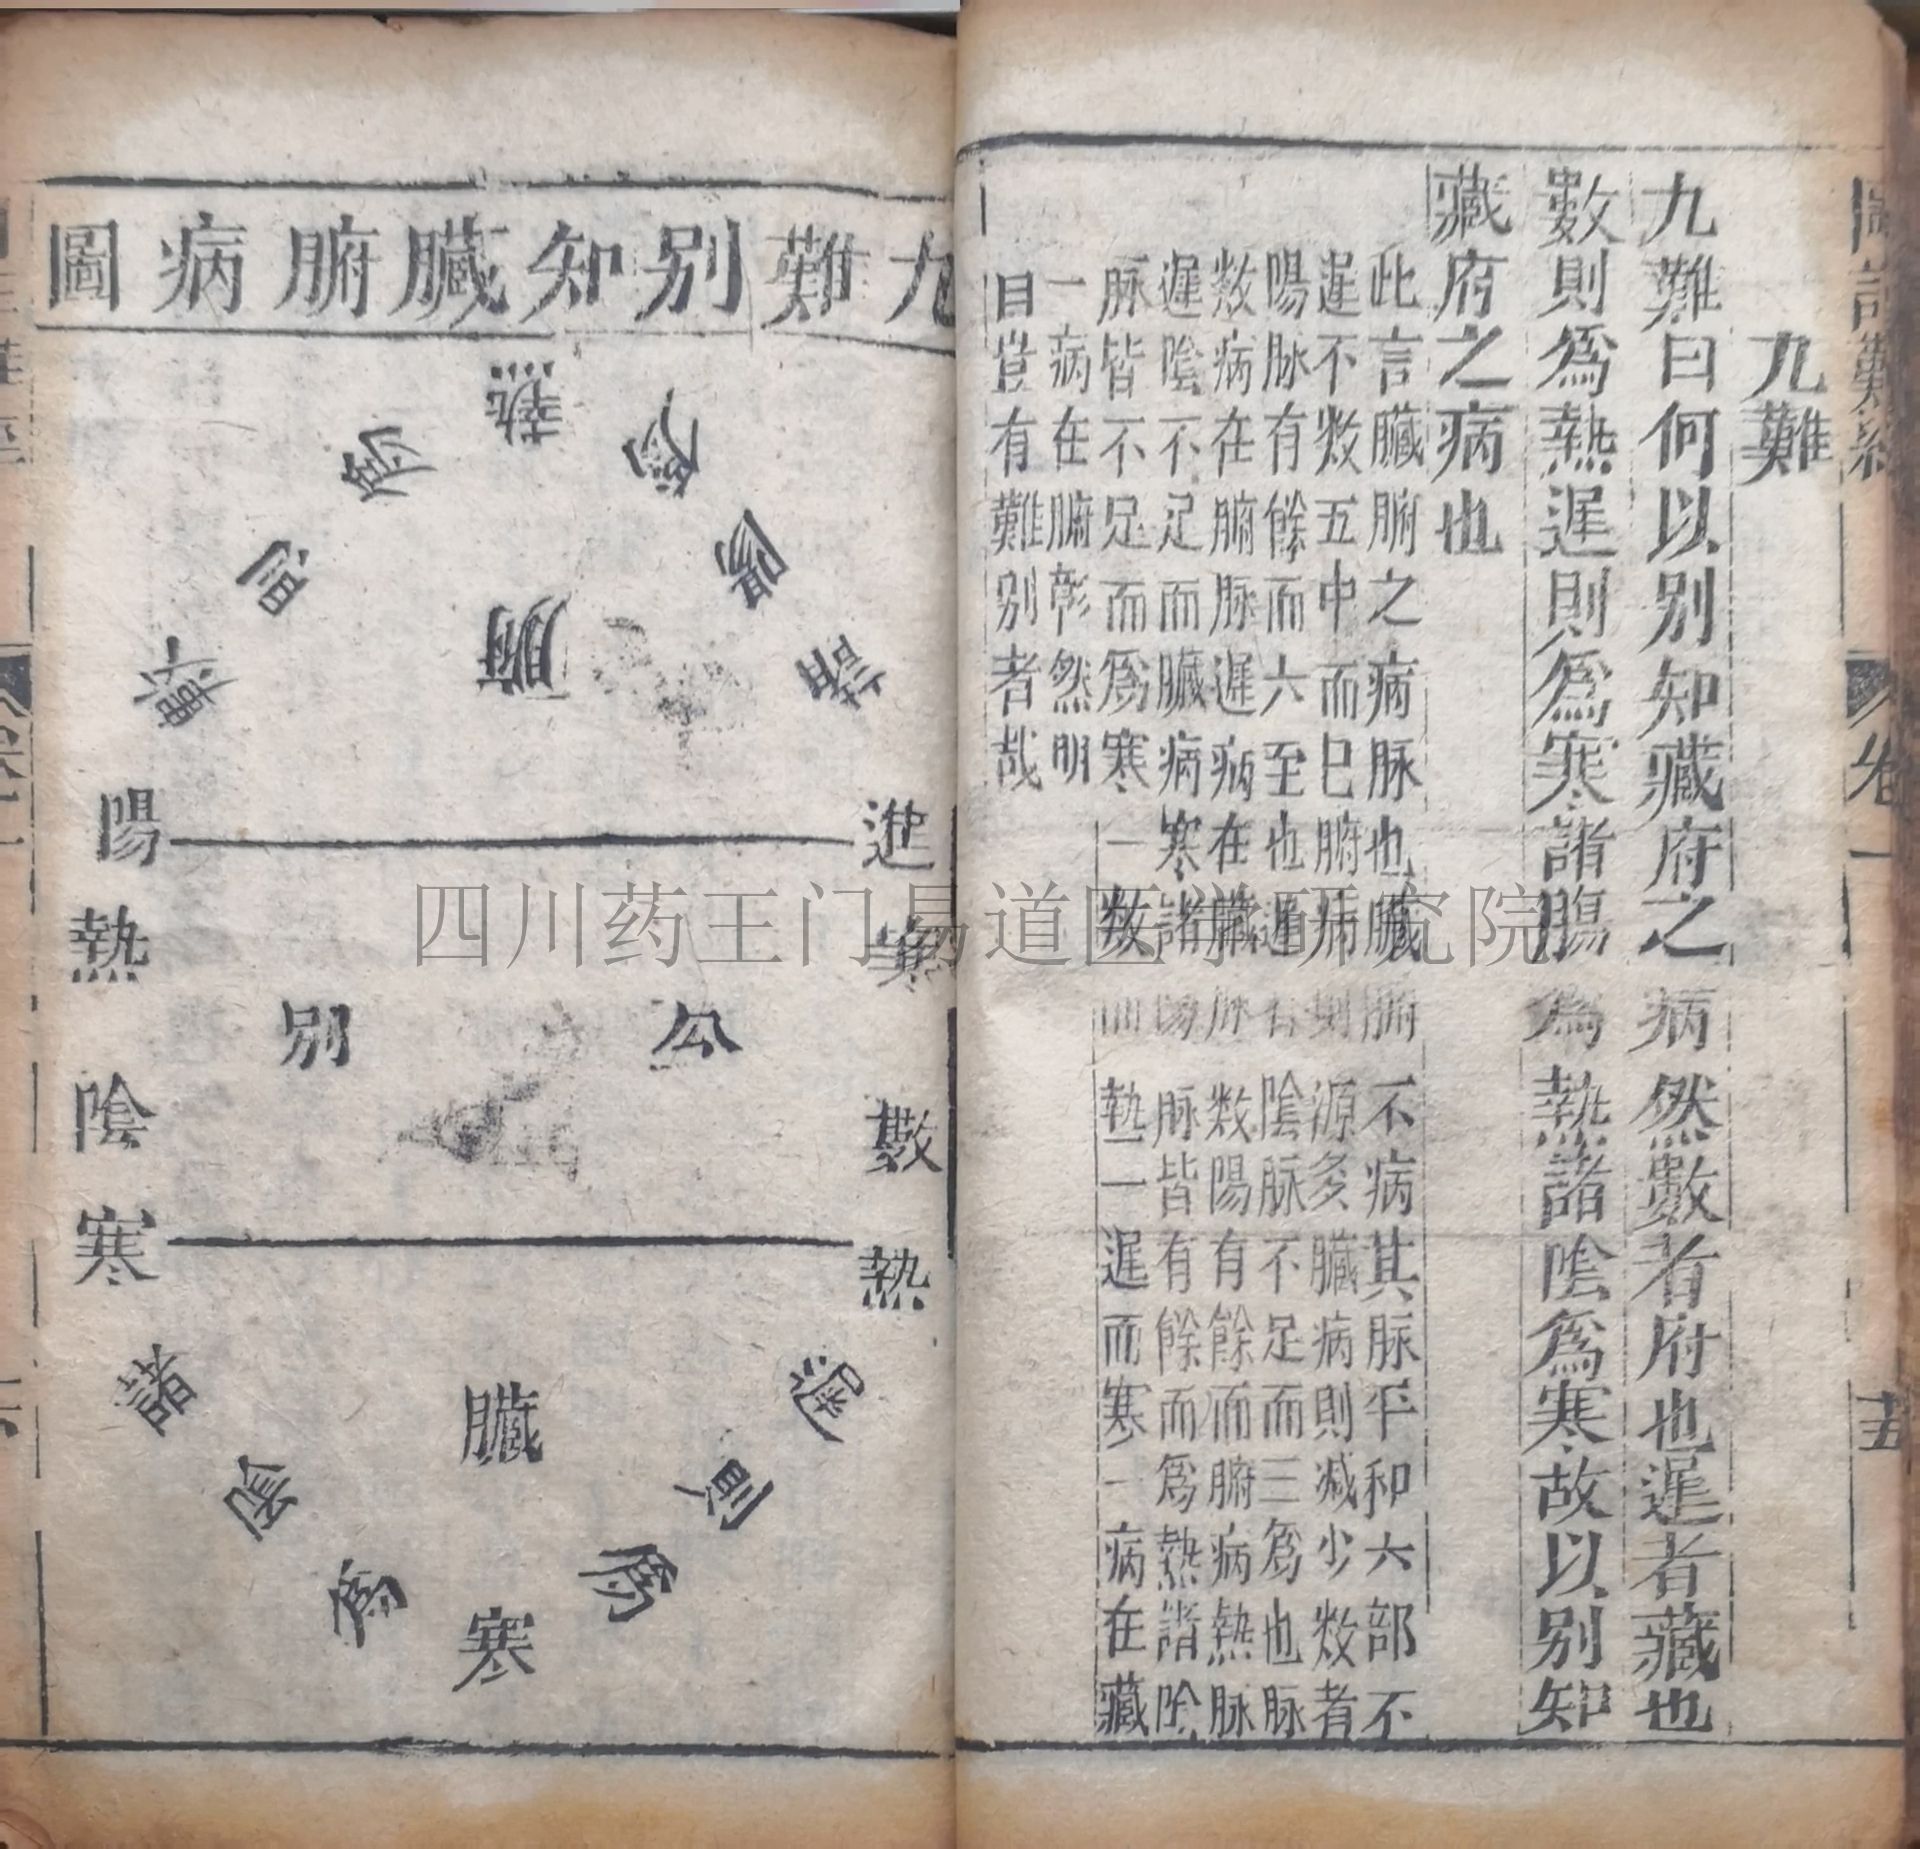 圖註難經 卷一 十五
九難
九難曰何以別知藏府之病然數者府也遲者藏也
數則為熱遲則為寒諸腸為熱諸陰為寒故以別知
藏府之病也
此言臟腑之病脉也臟腑不病其脉平和六部不
遲不数五中而巳腑病則源多臟病則减少数者
陽脉有餘而六至也遲者陰脉不足而三為也脉
数病在腑脉遲病在臟脉数陽有餘而腑病熱脉
遲陰不足而臟病寒諸陽脉皆有餘而為熱諸陰
脉皆不足而為寒一数而熱一遲而寒一病在藏
一病在腑彰然明
目豈有難別者哉
九難別知臟腑病圖
諸陽為熱
數則為
腑
進寒數熱
公別
陽熱陰寒
臟
遲則為寒
諸陰為
四川药王门易道医学研究院